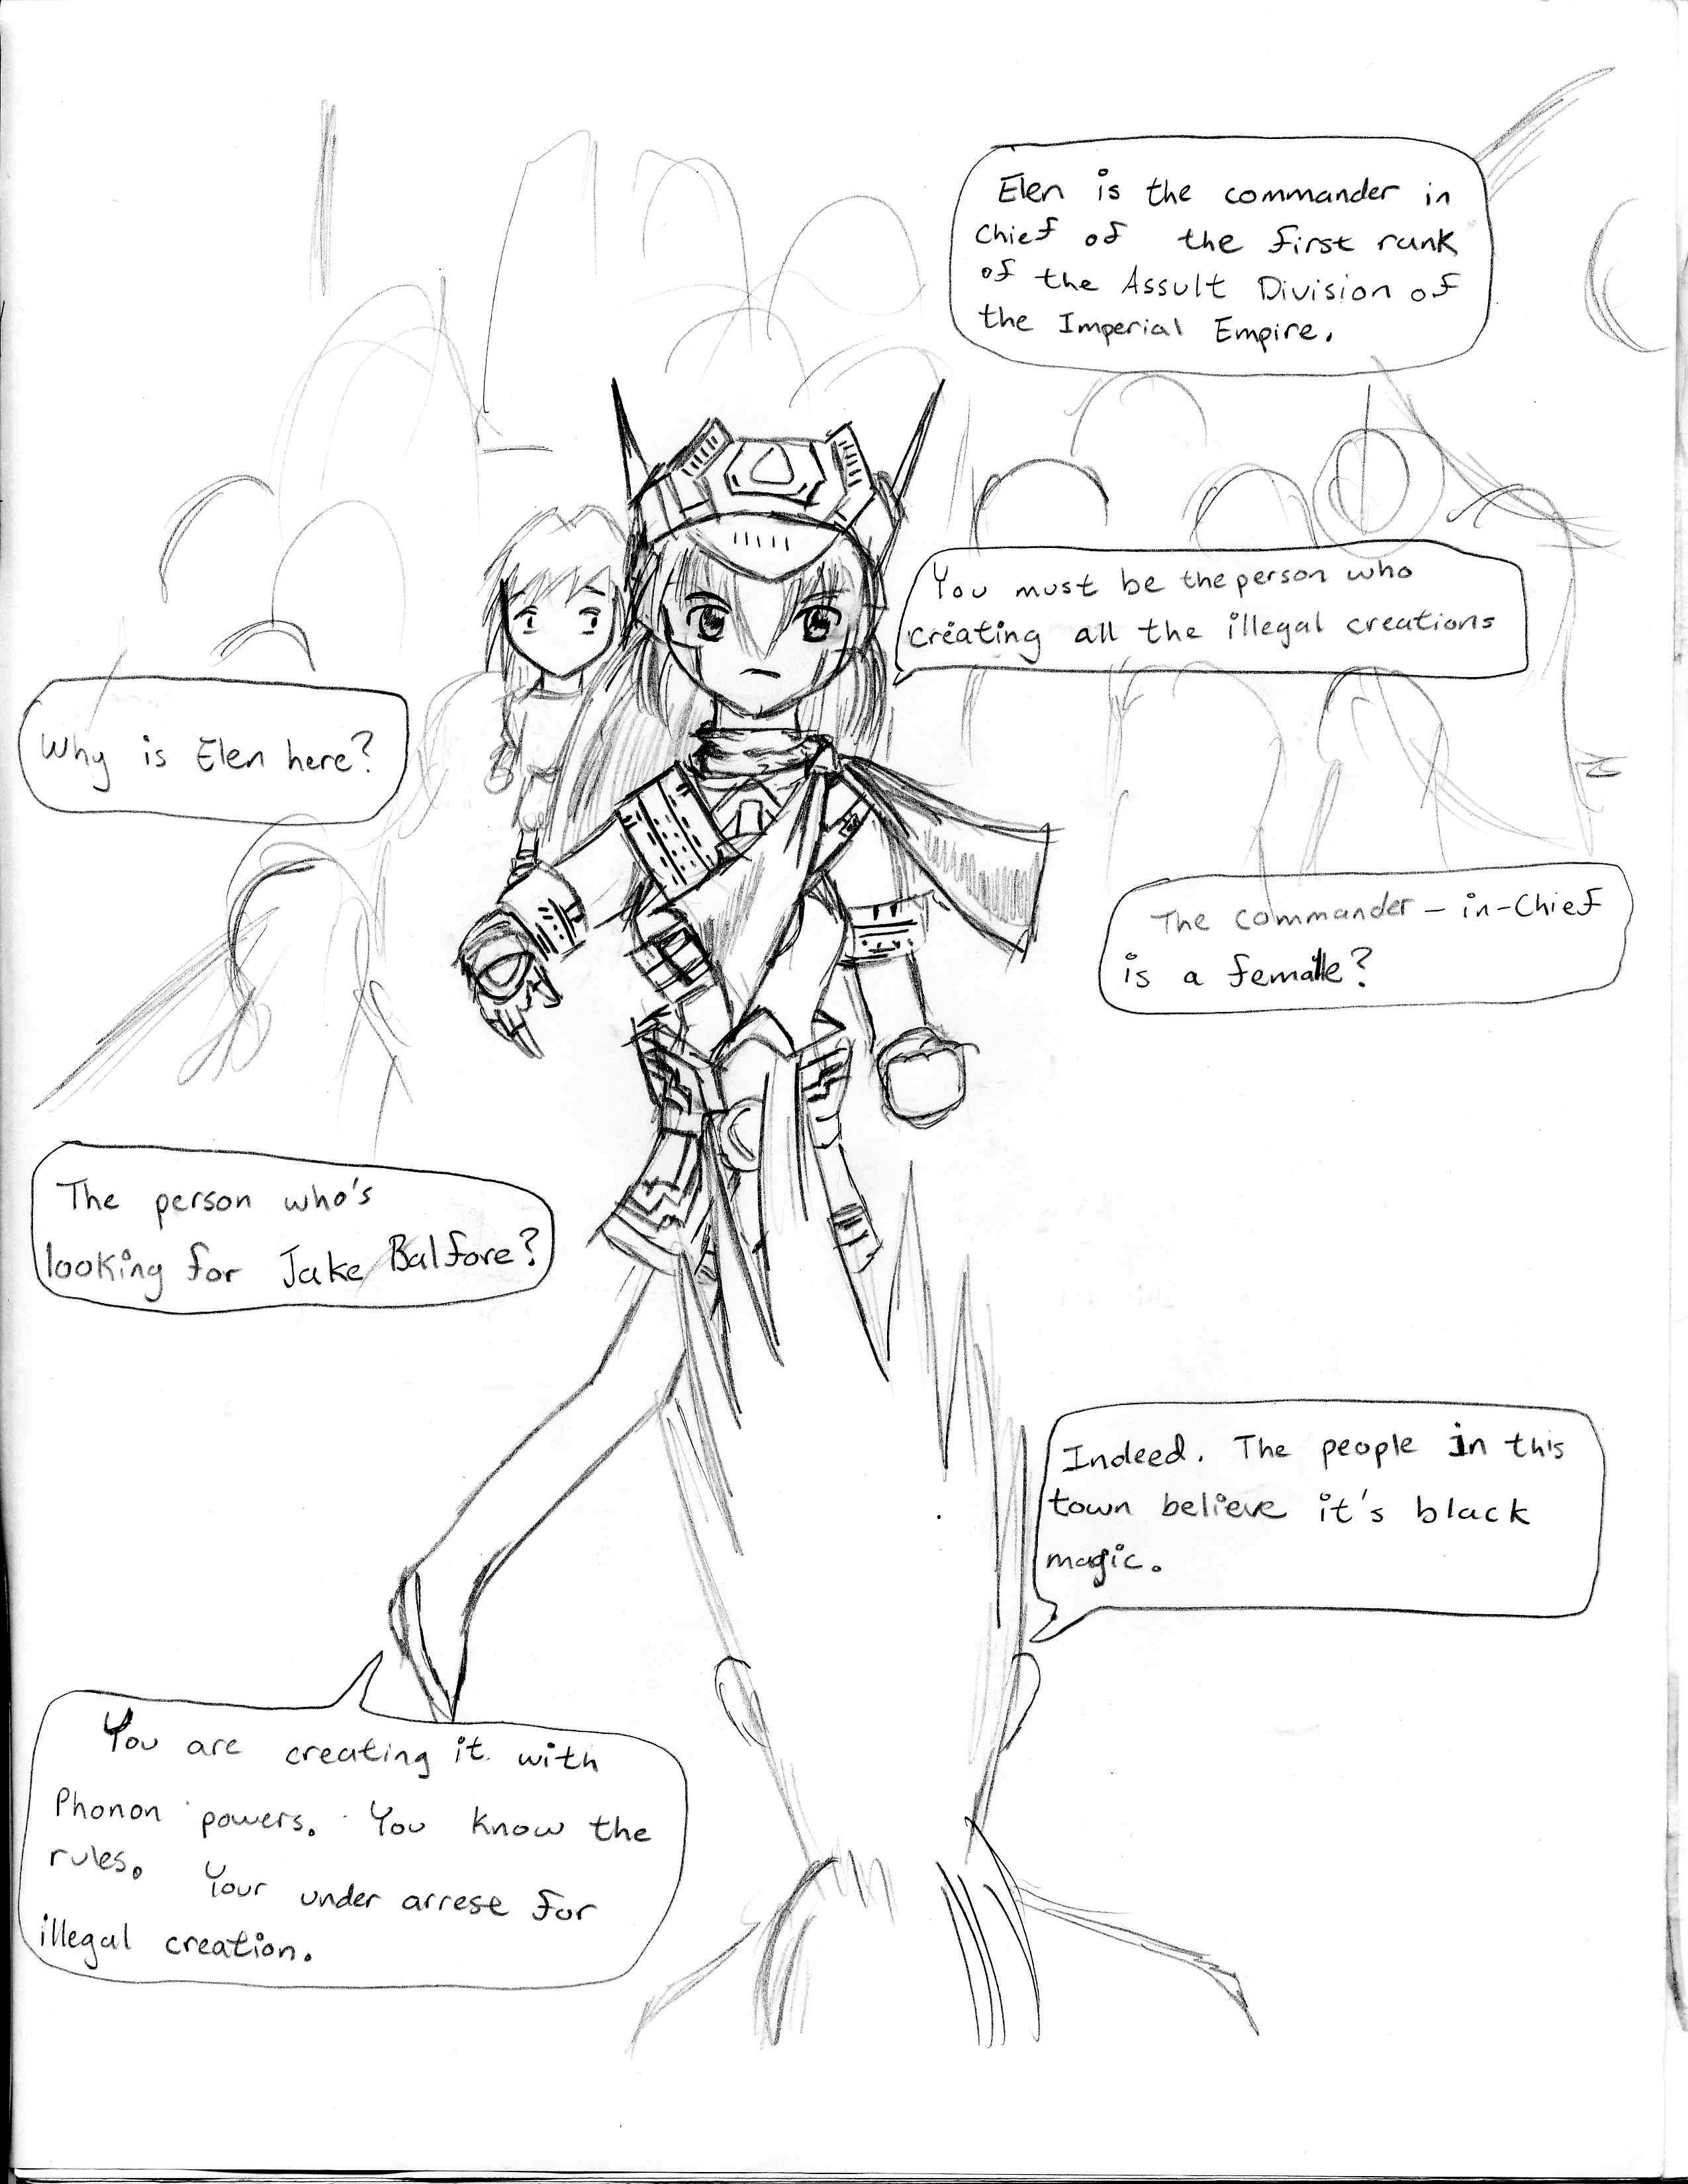 Elen is the commander in
chief of the first rank
of the Assult Division of
the Imperial Empire.
You must be the person who
creating all the illegal creations
Why is Elen here?
The commander-in-Chief
is a female?
The person who's
looking for Jake Balfore?
Indeed. The people in this
town believe it's black
magic.
You are creating it with
Phonon powers. You know the
rules. Your under arrest for
illegal creation.